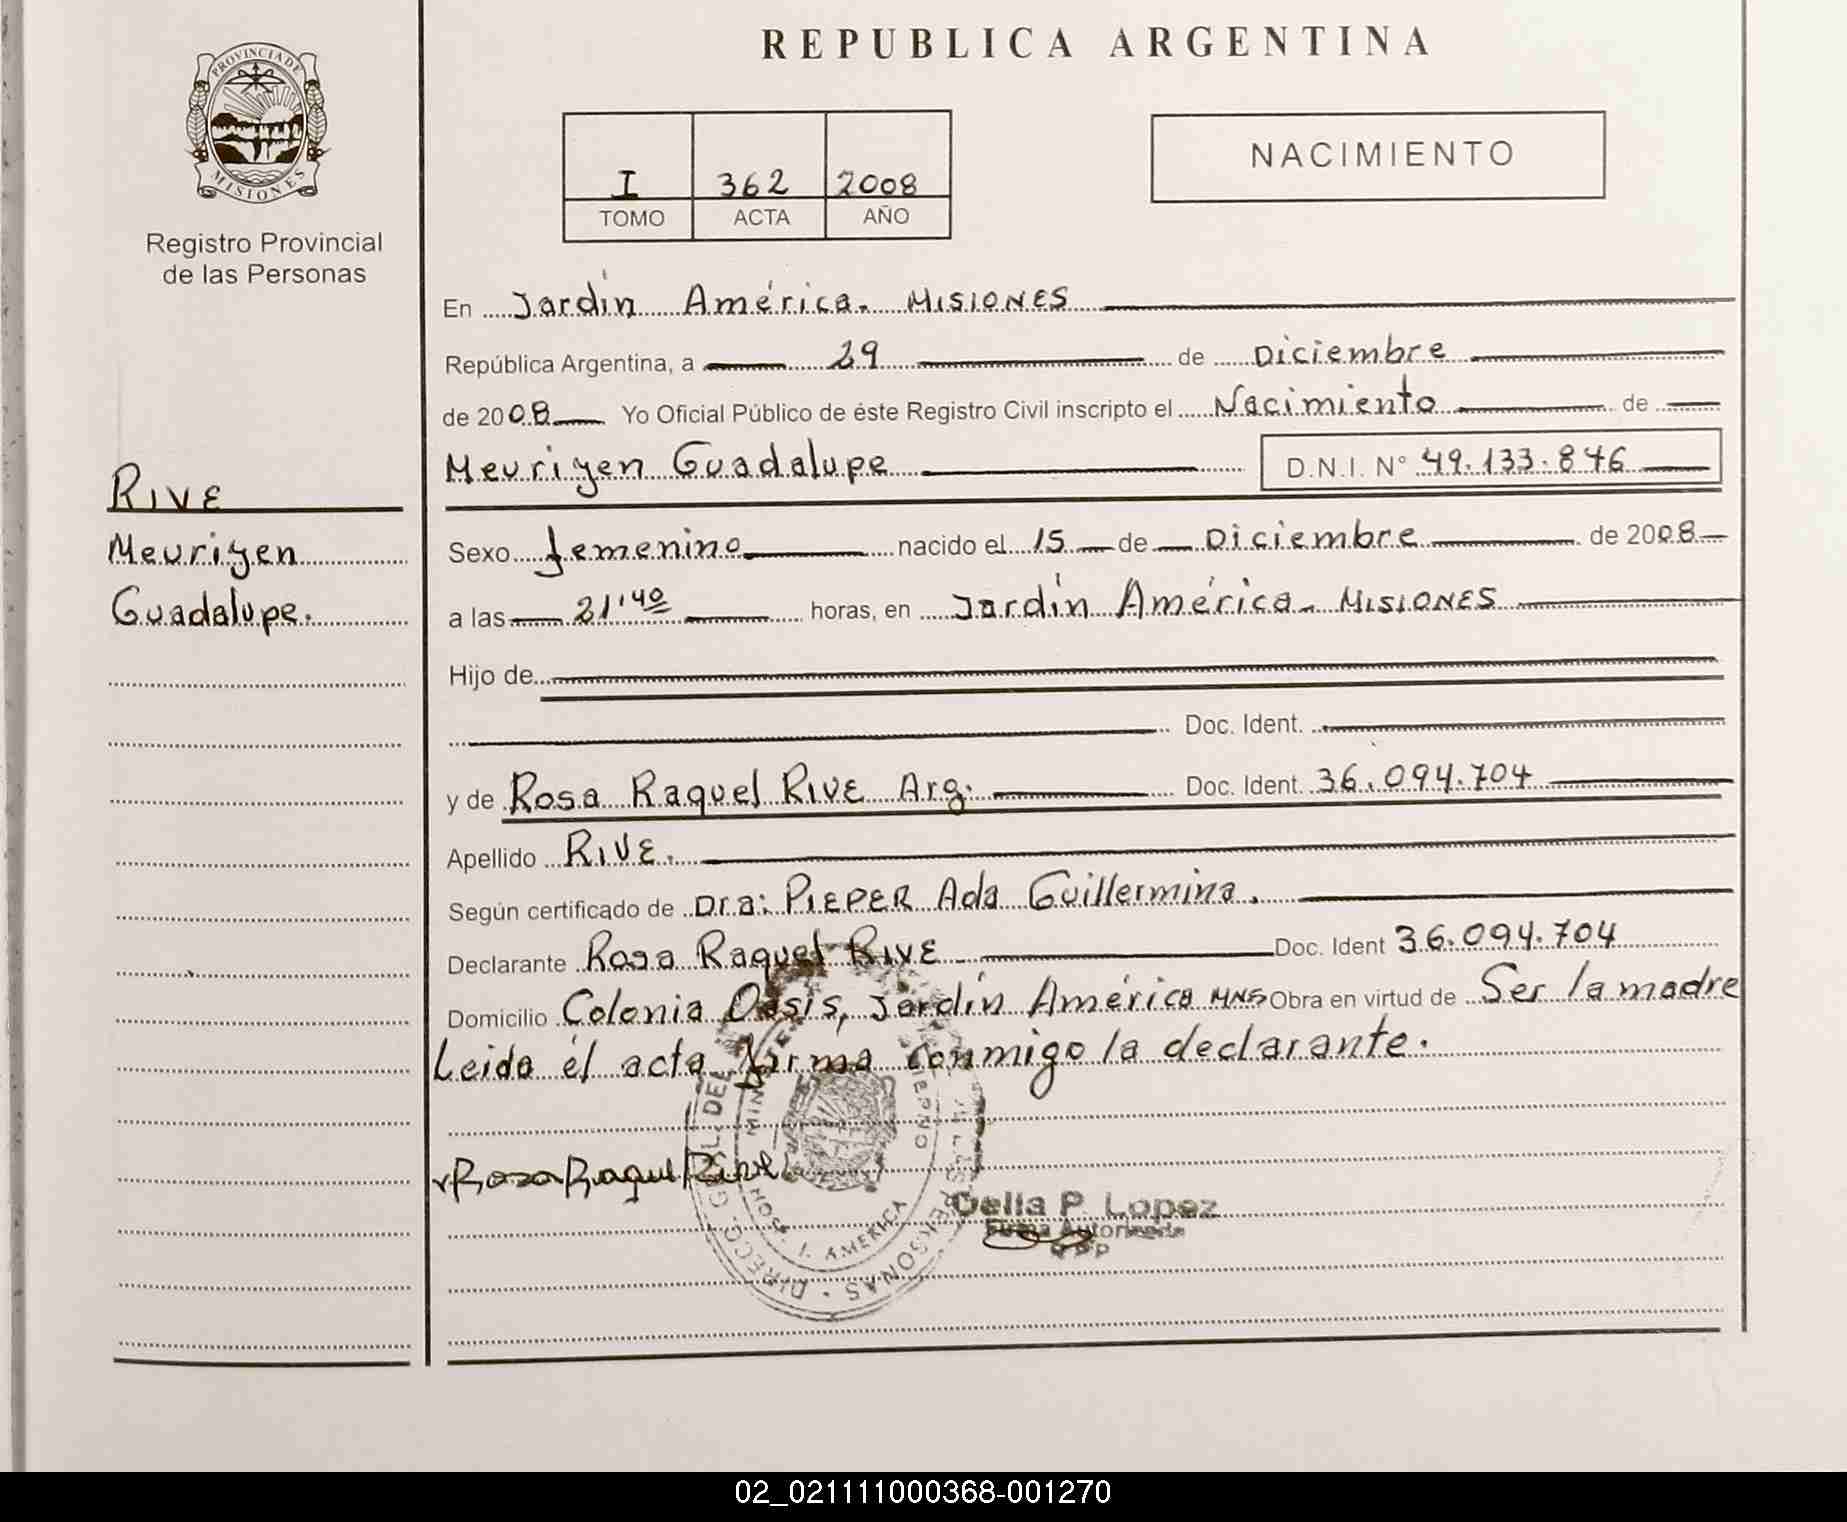 REPUBLICA ARGENTINA
PROVINCIA DE
MISIONES
Registro Provincial
de las Personas
I 362 2008
TOMO ACTA AÑO
NACIMIENTO
RIVE
Meurigen
Guadalupe.
En Jardín América. MISIONES
República Argentina, a 29 de Diciembre
de 2008 Yo Oficial Público de éste Registro Civil inscripto el Nacimiento de
Meurigen Guadalupe D.N.I. N° 49.133.846
Sexo femenino nacido el 15 de Diciembre de 2008
a las 21'40 horas, en Jardín América. MISIONES
Hijo de
Doc. Ident.
y de Rosa Raquel RIVE Arg. Doc. Ident. 36.094.704
Apellido RIVE.
Según certificado de Dra: PIEPER Ada Guillermina.
Declarante Rosa Raquel RIVE Doc. Ident 36.094.704
Domicilio Colonia Oasis, Jardín América MNS Obra en virtud de Ser la madre
Leida el acta firma conmigo la declarante.
Rosa Raquel Rive
Delia P. Lopez
Firma Autorizada
02_021111000368-001270